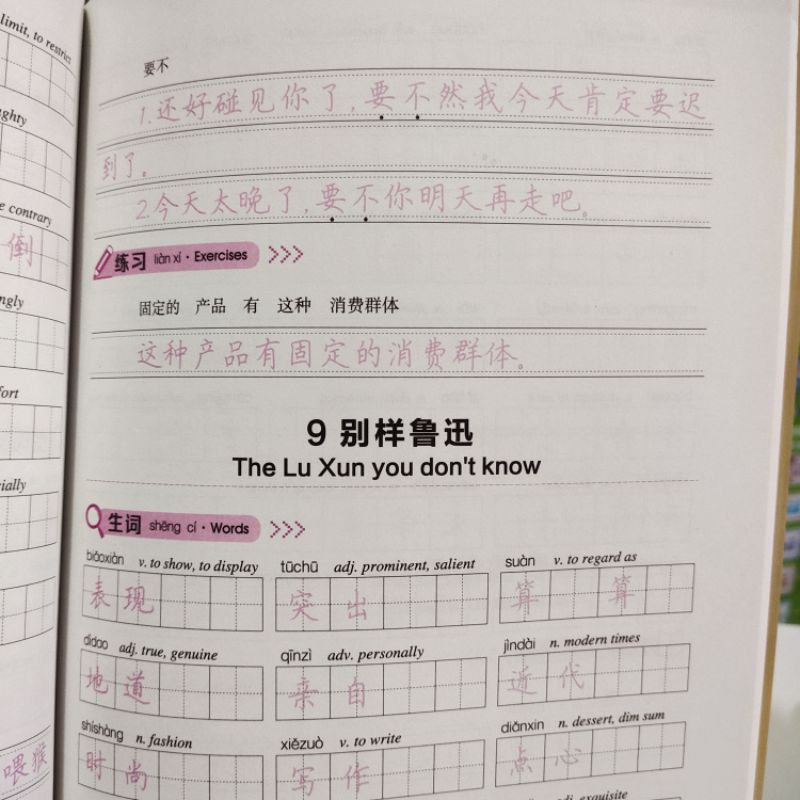 limit, to restrict
ghty
e contrary
倒
ngly
fort
cially
喂猴
要不
1.还好碰见你了,要不然我今天肯定要迟
到了。
2.今天太晚了,要不你明天再走吧。
练习 liàn xí · Exercises
固定的 产品 有 这种 消费群体
这种产品有固定的消费群体。
9 别样鲁迅
The Lu Xun you don't know
生词 shēng cí · Words
biǎoxiàn v. to show, to display
表现
tūchū adj. prominent, salient
突出
suàn v. to regard as
算 算
dìdao adj. true, genuine
地道
qīnzì adv. personally
亲自
jìndài n. modern times
近代
shíshàng n. fashion
时尚
xiězuò v. to write
写作
diǎnxin n. dessert, dim sum
点心
adj. exquisite